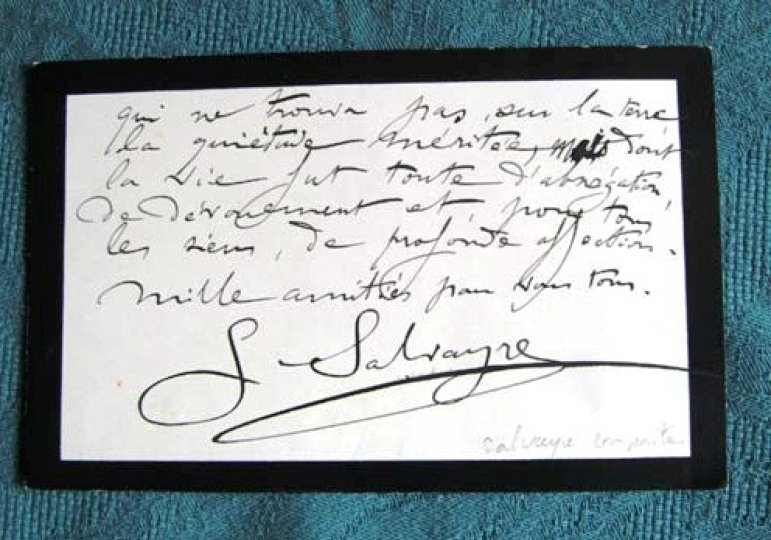 qui ne trouva pas, sur la terre
la quiétude méritée, mais dont
la vie fut toute d'abnégation,
de dévouement et, pour tous
les siens, de profonde affection.
Mille amitiés pour vous tous.
G. Salvayre
Salvayre compositeur